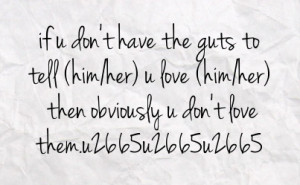 if u don't have the guts to
tell (him/her) u love (him/her)
then obviously u don't love
them.u2665u2665u2665